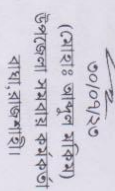 ৩০/০৭/২৩
(মোঃ আব্দুল মতিন)
উপজেলা সমবায় কর্মকর্তা
বাঘা,রাজশাহী।